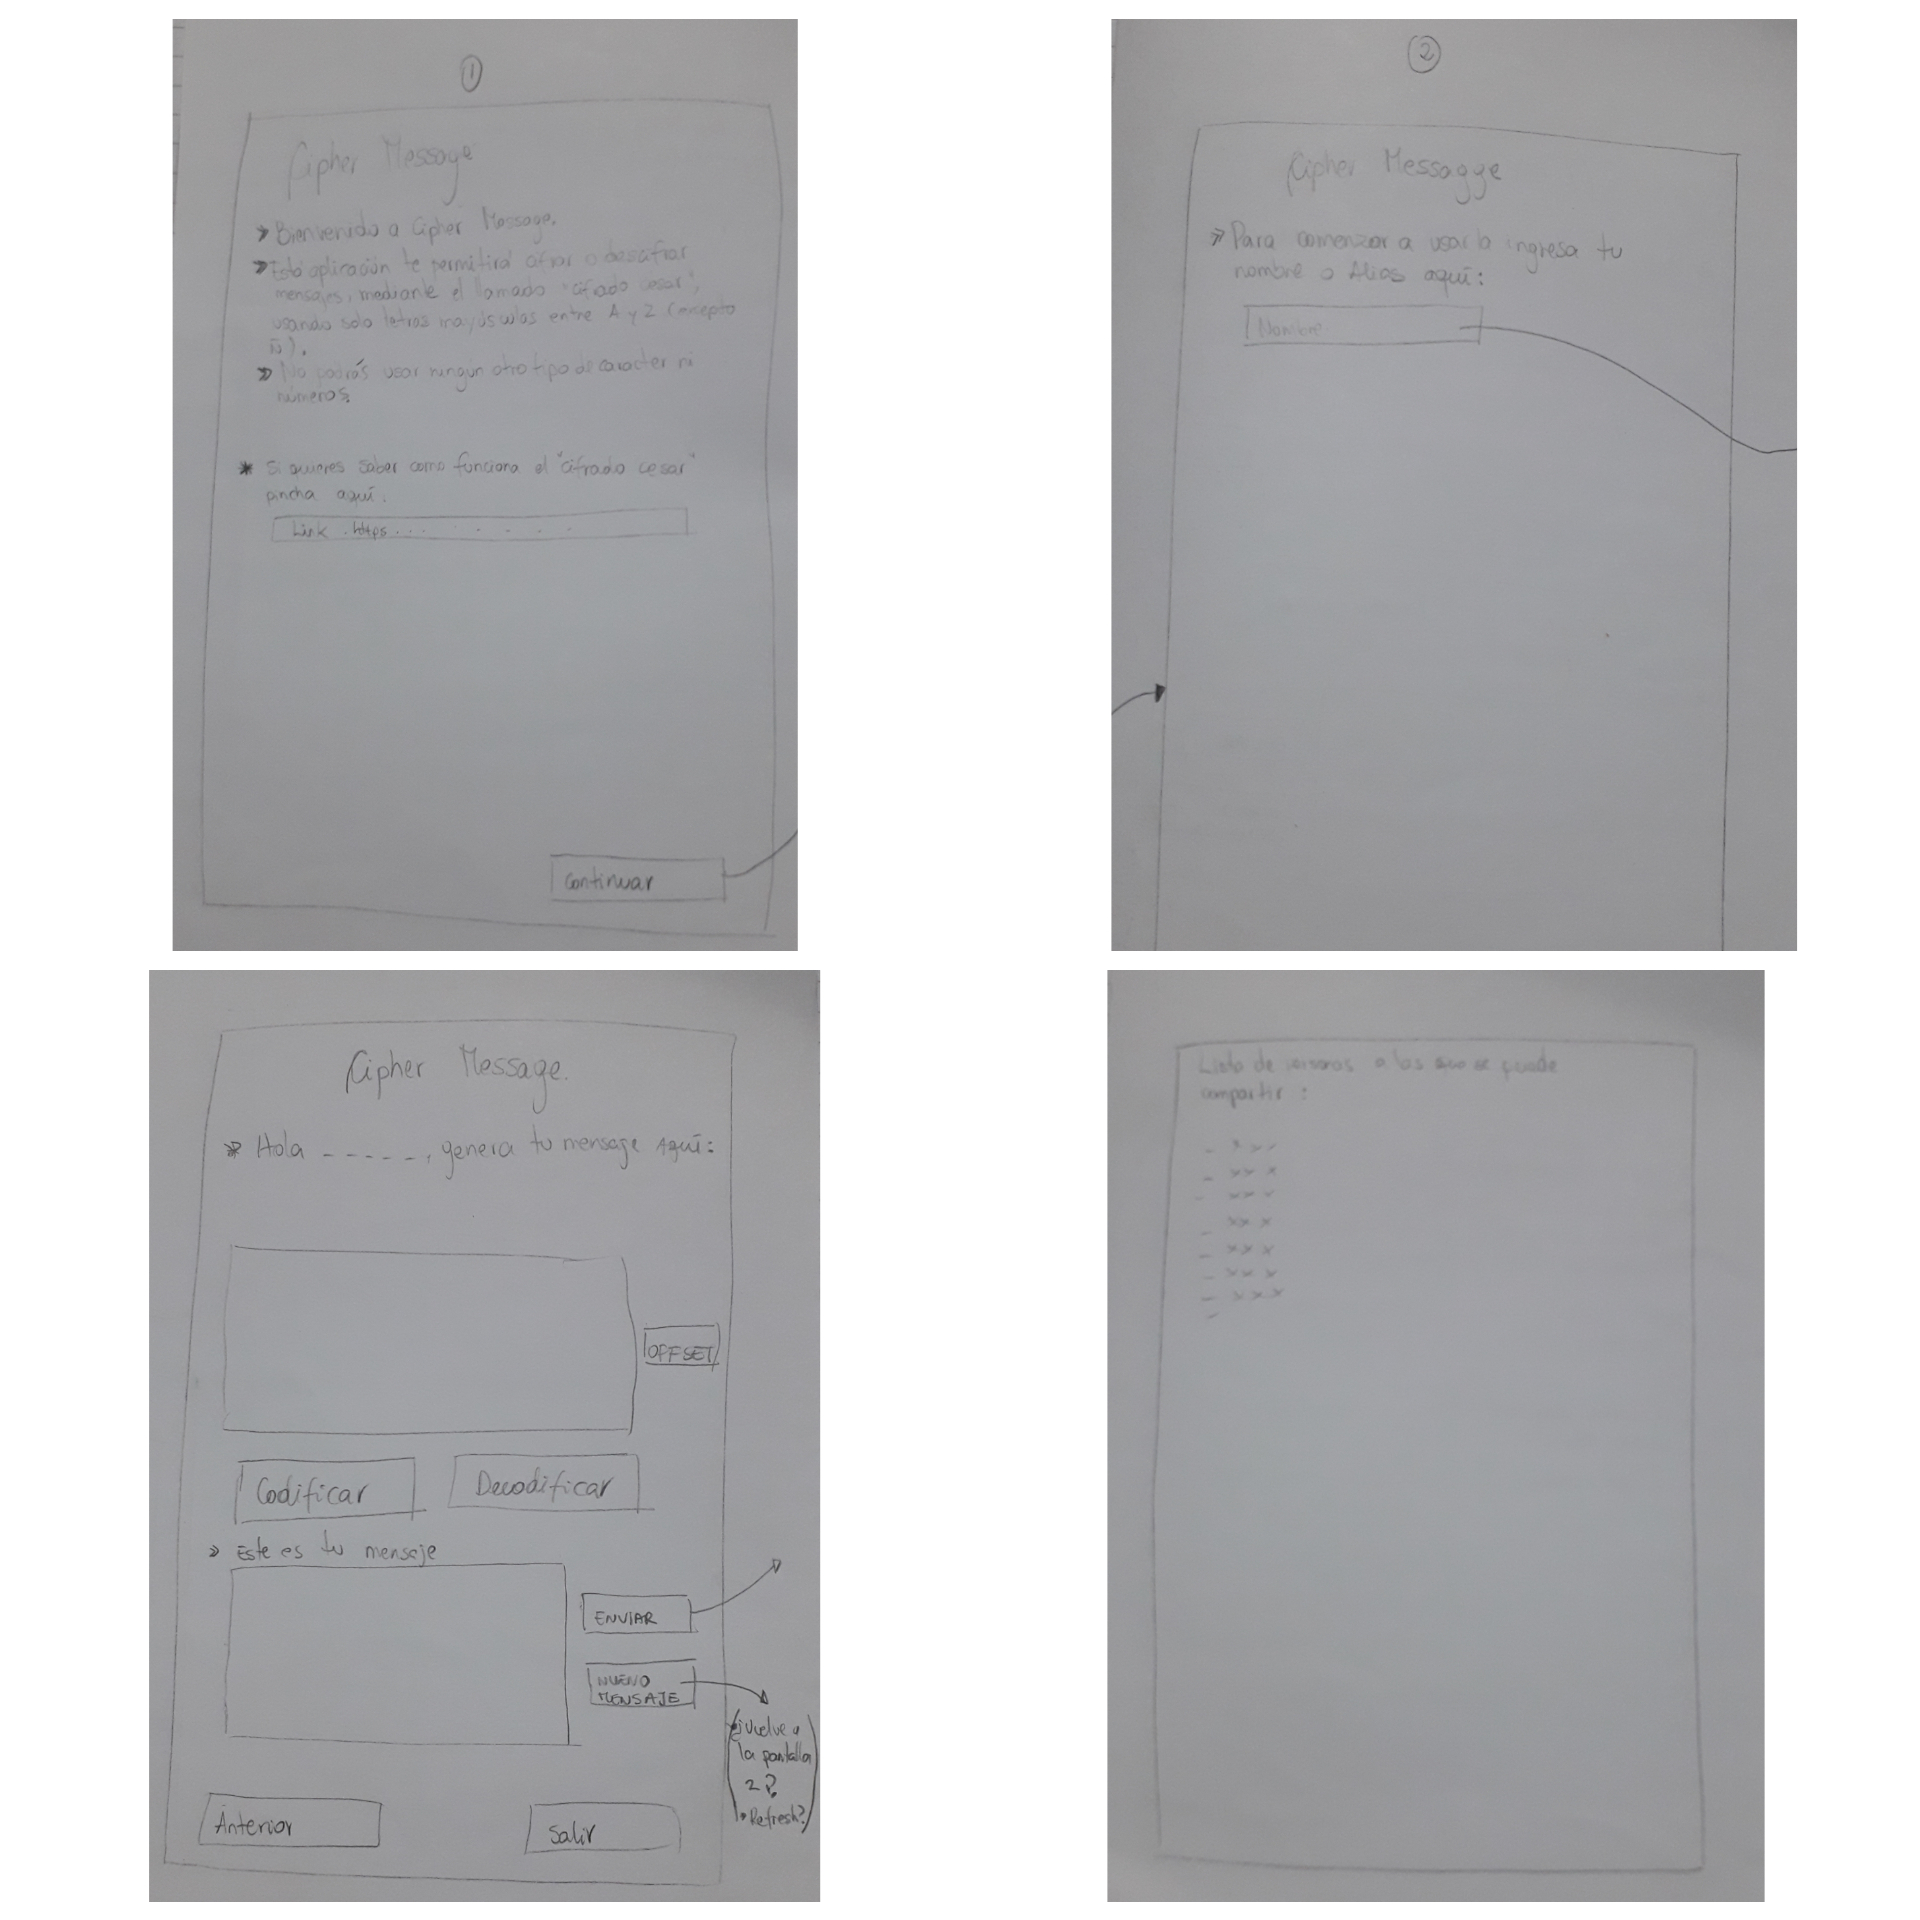 1
Cipher Message
» Bienvenido a Cipher Message.
» Esta aplicación te permitirá cifrar o desafiar
mensajes, mediante el llamado "cifrado cesar",
usando solo letras mayúsculas entre A y Z (excepto
ñ).
» No podrás usar ningún otro tipo de caracter ni
números.
* Si quieres saber como funciona el "cifrado cesar"
pincha aquí.
Link .https . . . . . . . .
Continuar
2
Cipher Messagge
» Para comenzar a usarla ingresa tu
nombre o Alias aquí:
Nombre
Cipher Message.
» Hola _ _ _ _ _, genera tu mensaje Aquí:
OFFSET
Codificar Decodificar
» Este es tu mensaje
ENVIAR
NUEVO
MENSAJE
¿Vuelve a
la pantalla
2?
• Refresh?
Anterior Salir
Lista de personas a las que se puede
compartir :
- x x x
- x x x
- x x x
- x x x
- x x x
- x x x
- x x x
-